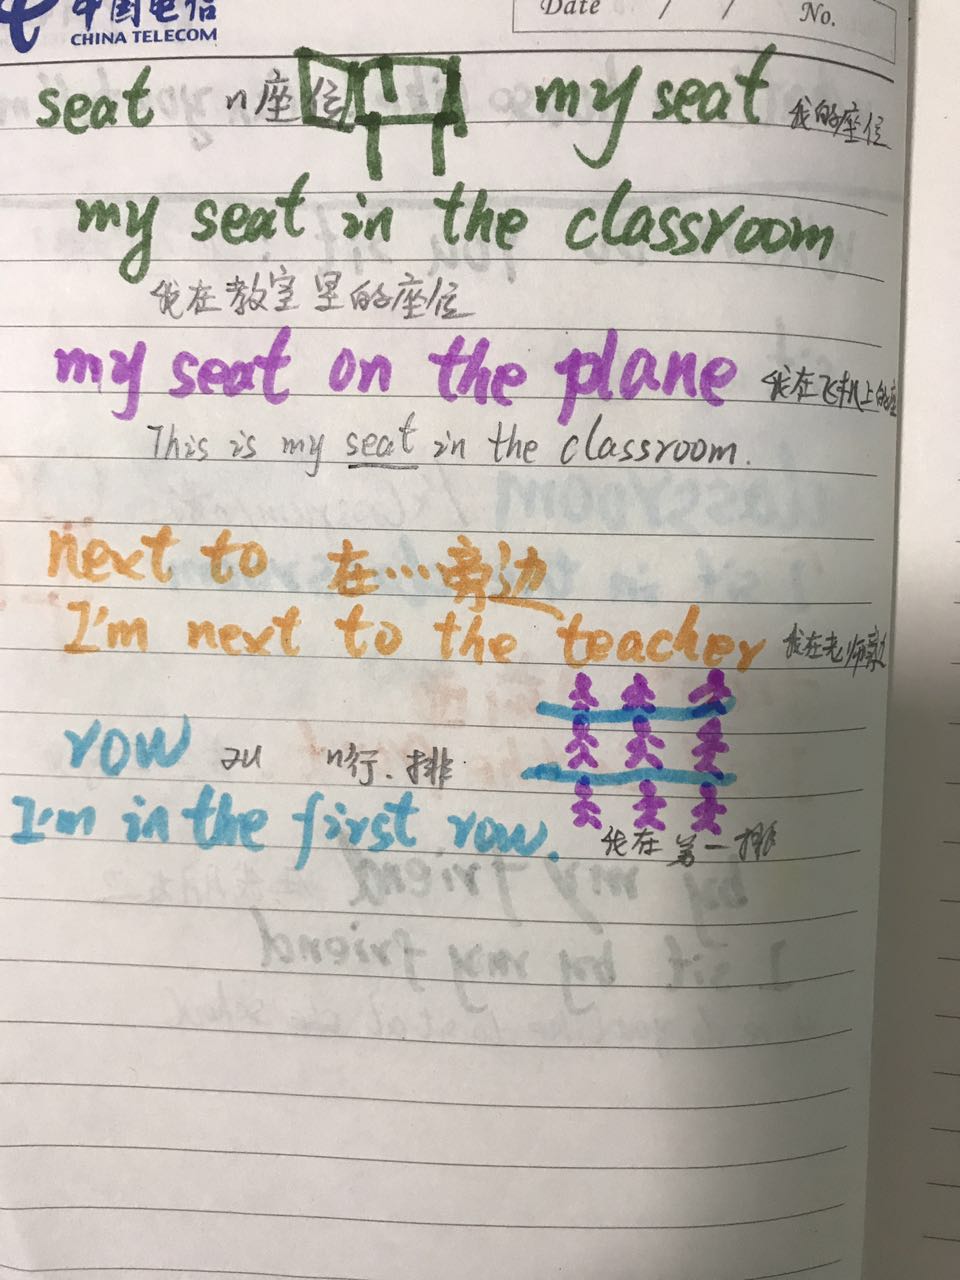 中国电信
CHINA TELECOM
Date / / No.
seat n座位 my seat 我的座位
my seat in the classroom
我在教室里的座位
my seat on the plane 我在飞机上的座
This is my seat in the classroom.
next to 在…旁边
I'm next to the teacher 我在老师旁边
row n行、排
I'm in the first row. 我在第一排